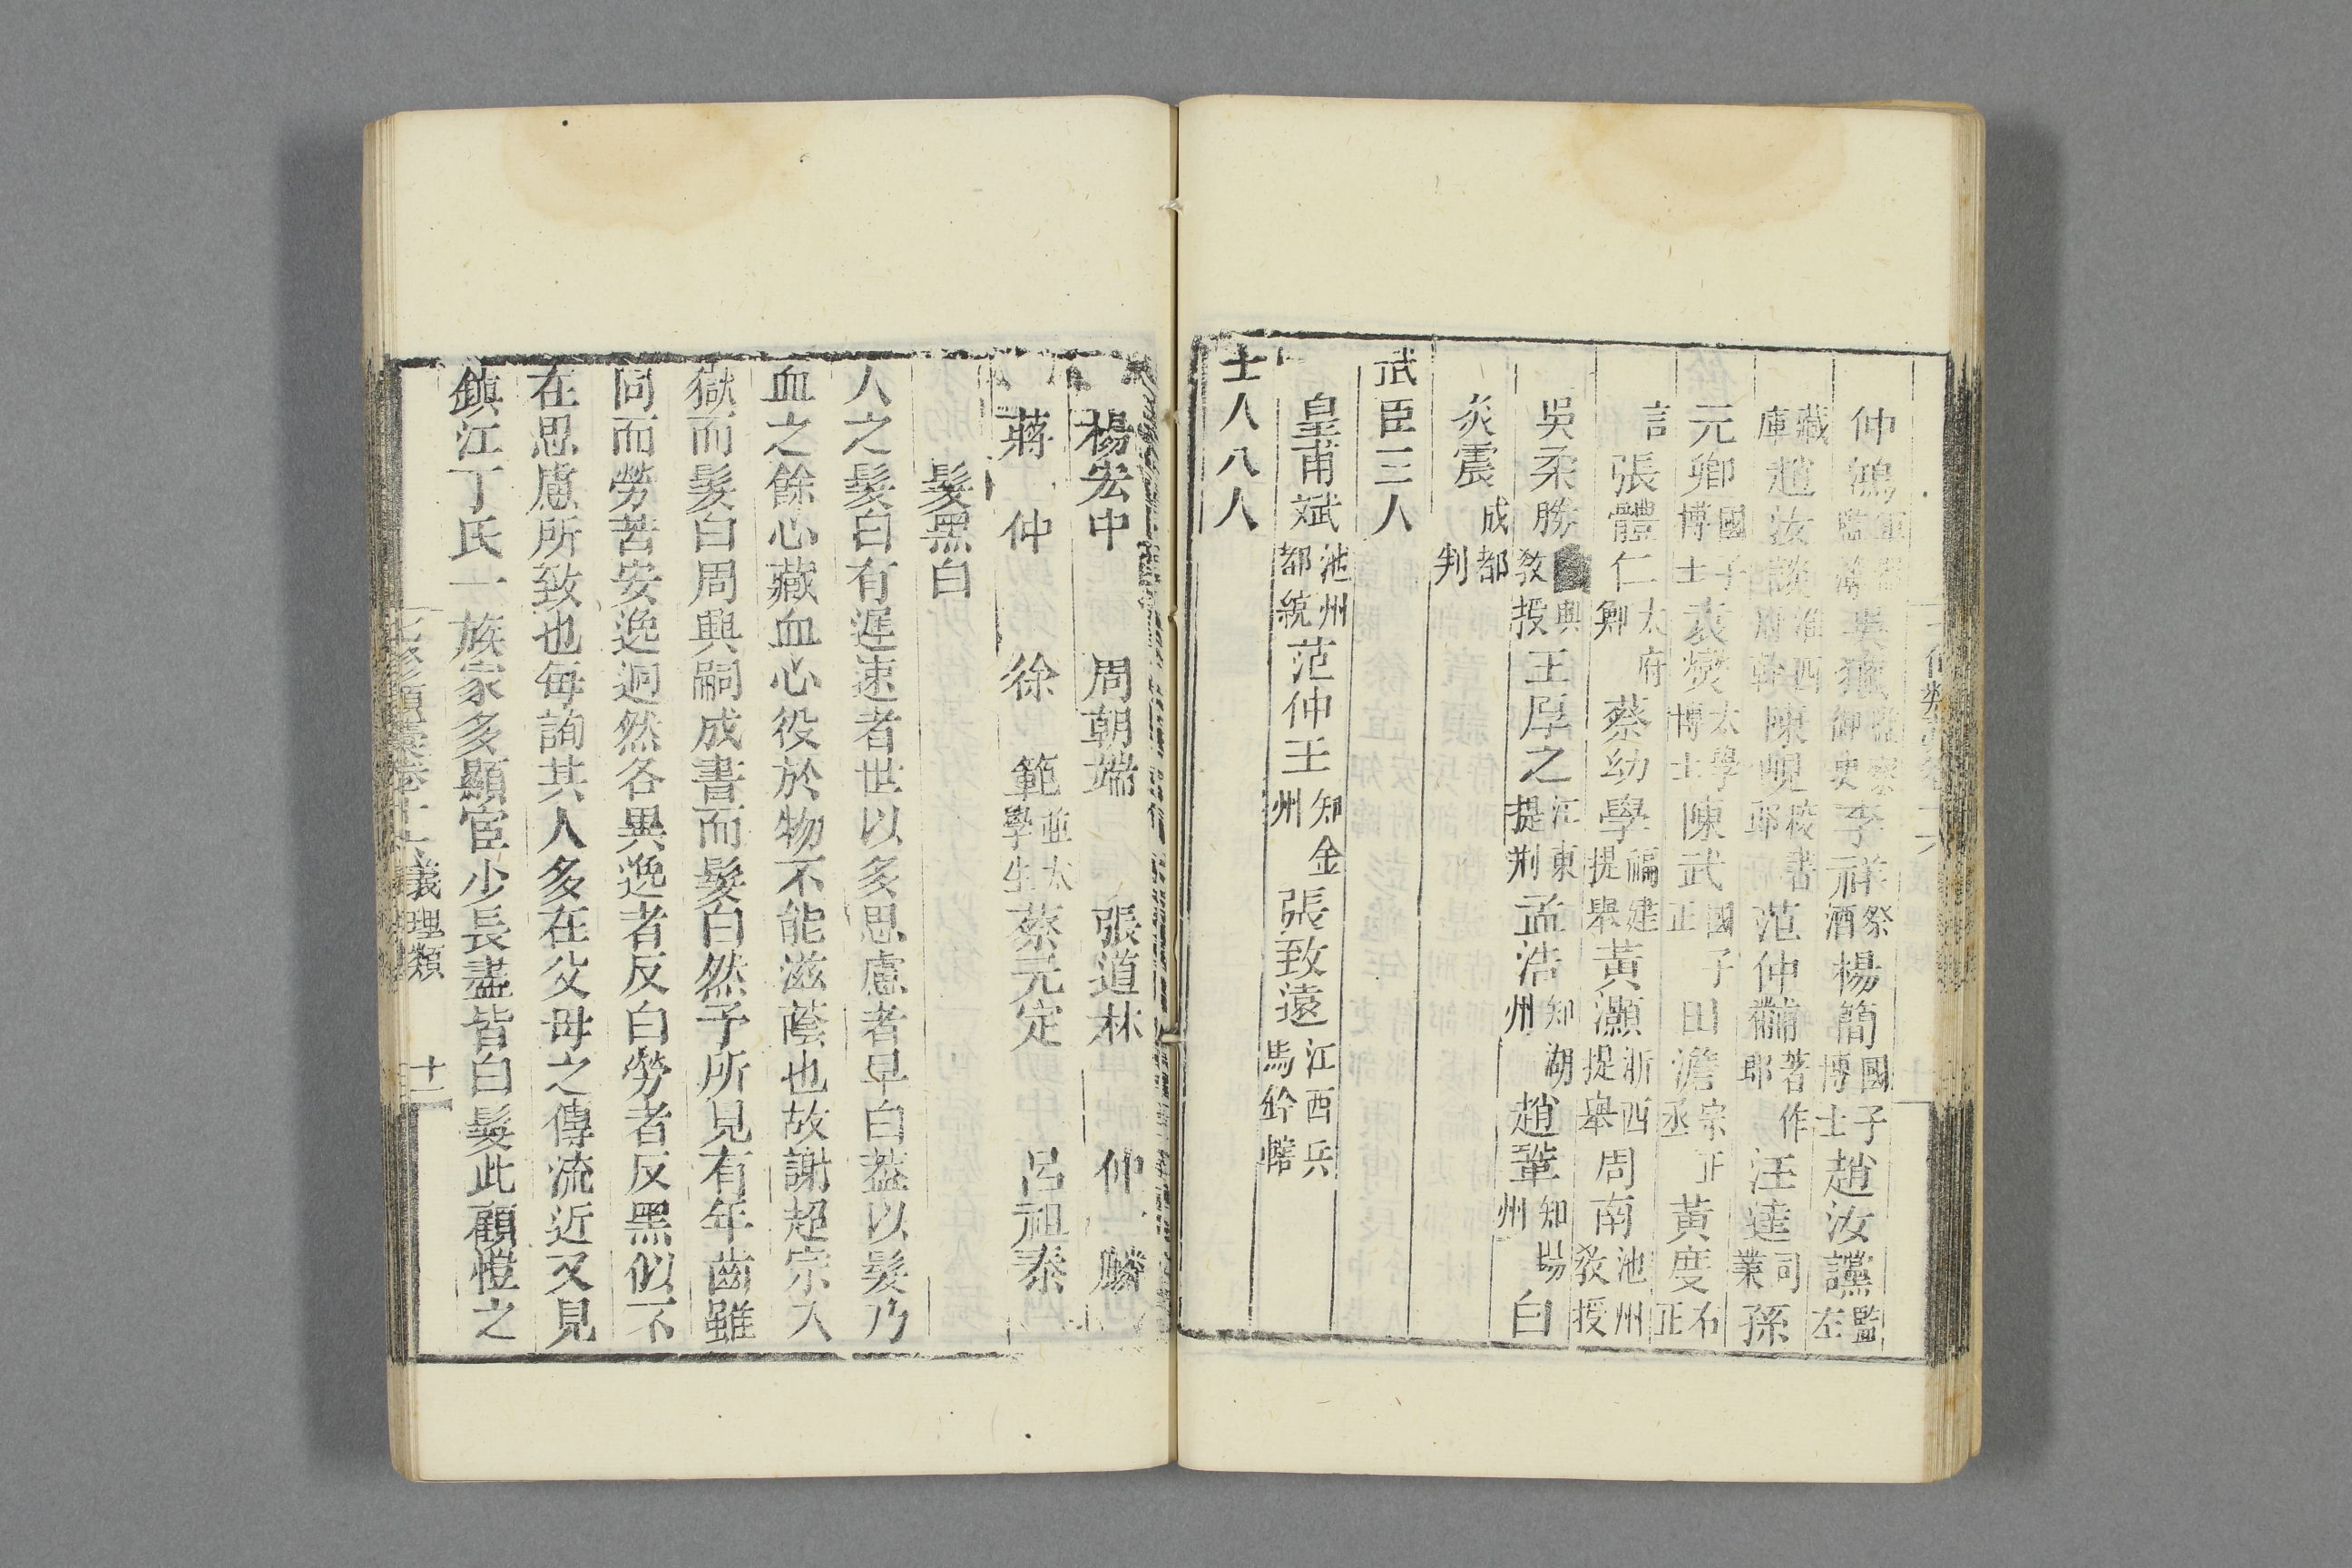 仲鴻軍器監簿吳獵監察御史李祥祭酒楊簡國子博士趙汝讜監左
藏庫趙汝談淮西府幹陳峴校書郎范仲黼著作郎汪逵司業孫
元卿國子博士袁燮太學博士陳武國子正田澹宗正丞黃度右正
言張體仁太府卿蔡幼學福建提舉黃灝浙西提舉周南池州教授
吳柔勝興教授王厚之江東提刑孟浩知湖州趙鞏知揚州白
炎震成都判
武臣三人
皇甫斌池州都統范仲壬知金州張致遠江西兵馬鈐轄
士人八人
楊宏中 周朝端 張道林 仲麟
蔣 仲 徐 範並太學生蔡元定 呂祖泰
髮黑白
人之髮白有遲速者世以多思慮者早白葢以髮乃
血之餘心藏血心役於物不能滋蔭也故謝超宗入
獄而髮白周興嗣成書而髮白然予所見有年齒雖
同而勞苦安逸迥然各異逸者反白勞者反黑似不
在思慮所致也每詢其人多在父母之傳流近又見
鎮江丁氏一族家多顯宦少長盡皆白髮此顧愷之
七修類藁卷十七義理類 十二